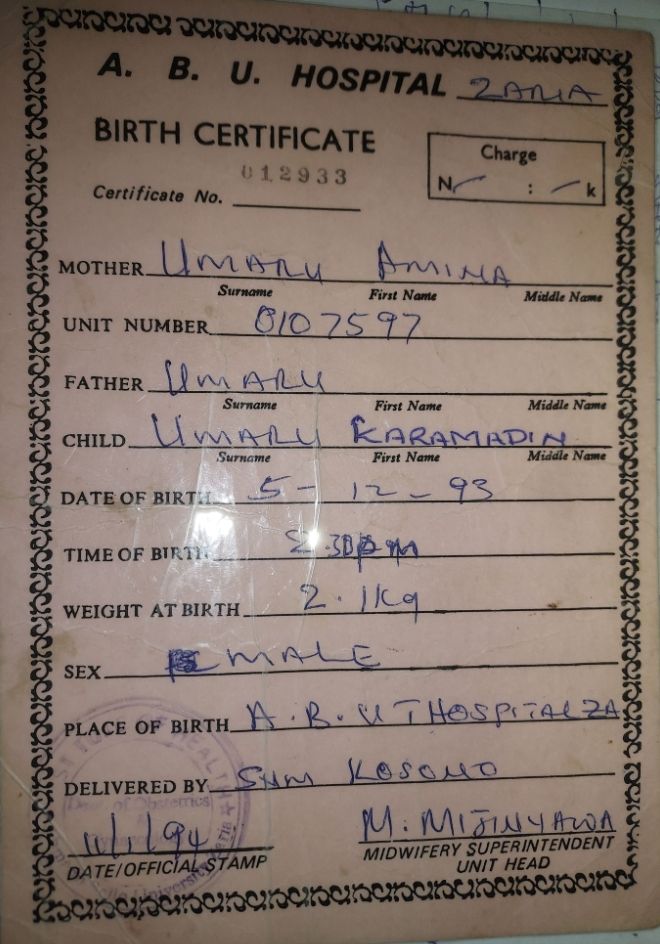 A. B. U. HOSPITAL ZARIA
BIRTH CERTIFICATE
Charge
N : k
012933
Certificate No.
MOTHER UMARU AMINA
Surname First Name Middle Name
UNIT NUMBER 0107597
FATHER UMARU
Surname First Name Middle Name
CHILD UMARU KARAMADIN
Surname First Name Middle Name
DATE OF BIRTH 5-12-93
TIME OF BIRTH 2.30pm
WEIGHT AT BIRTH 2.1Kg
SEX MALE
PLACE OF BIRTH A.B.U T HOSPITAL ZA
DELIVERED BY S/N/M KOSOKO
11/1/94 M. MIJINYAWA
DATE/OFFICIAL STAMP MIDWIFERY SUPERINTENDENT
UNIT HEAD
Dept. of Obstetrics